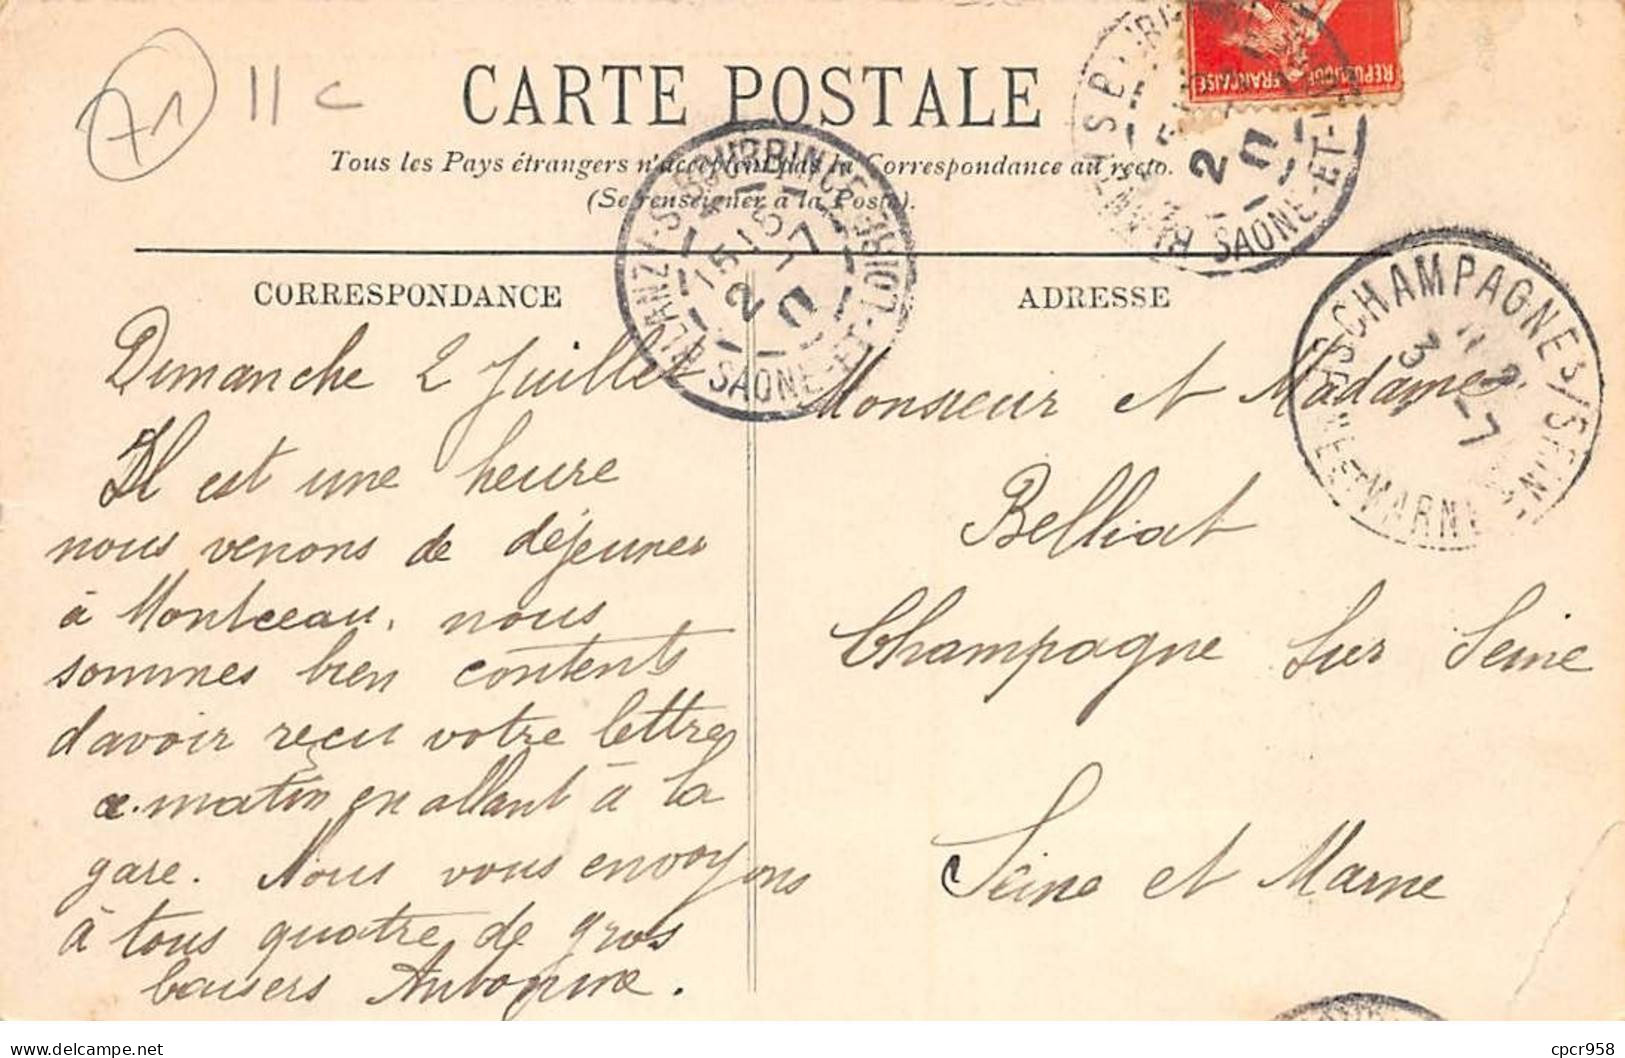 71
11 c
CARTE POSTALE
Tous les Pays étrangers n'acceptent pas la Correspondance au recto.
(Se renseigner à la Poste).
REPUBLIQUE FRANÇAISE
BLANZY-S-BOURBINCE
15-15
2-7
SAONE-ET-LOIRE
SAONE-ET-
CHAMPAGNE S/SEINE
3-7
SEINE ET MARNE
CORRESPONDANCE
Dimanche 2 Juillet
Il est une heure
nous venons de déjeuner
à Montceau. nous
sommes bien contents
d'avoir reçu votre lettre
ce matin en allant à la
gare. Nous vous envoyons
à tous quatre de gros
baisers Antonine.
ADRESSE
Monsieur et Madame
Belliat
Champagne Sur Seine
Seine et Marne
cpcr958